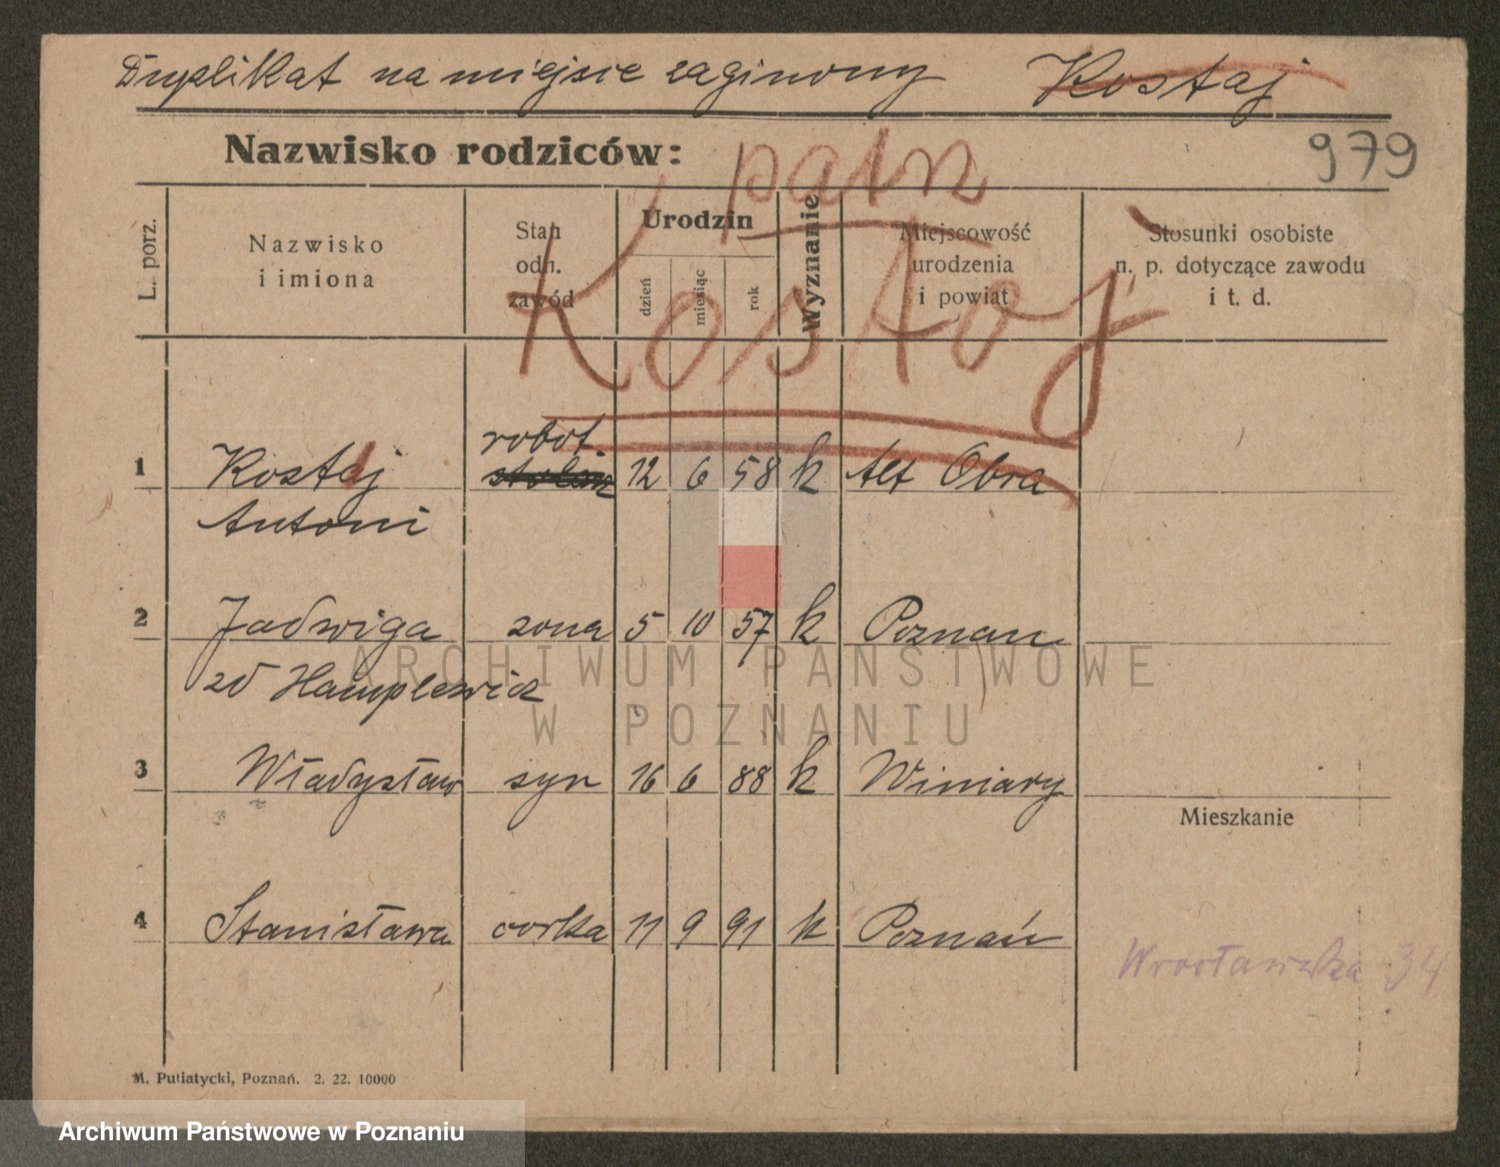 Duplikat na miejsce zaginiony Kostaj
Nazwisko rodziców:
patrz
979
Kostoj
L. porz.
Nazwisko
i imiona
Stan
odn.
zawód
Urodzin
dzień
miesiąc
rok
Wyznanie
Miejscowość
urodzenia
i powiat
Stosunki osobiste
n. p. dotyczące zawodu
i t. d.
robot.
1 Kostaj stolarz 12 6 58 k Alt Obra
Antoni
2 Jadwiga zona 5 10 57 k Poznan
zd Hamplewicz
3 Władysław syn 16 6 88 k Winiary
Mieszkanie
4 Stanisława corka 11 9 91 k Poznań
Wrocławska 34
M. Putiatycki, Poznań. 2. 22. 10000
ARCHIWUM PAŃSTWOWE
W POZNANIU
Archiwum Państwowe w Poznaniu